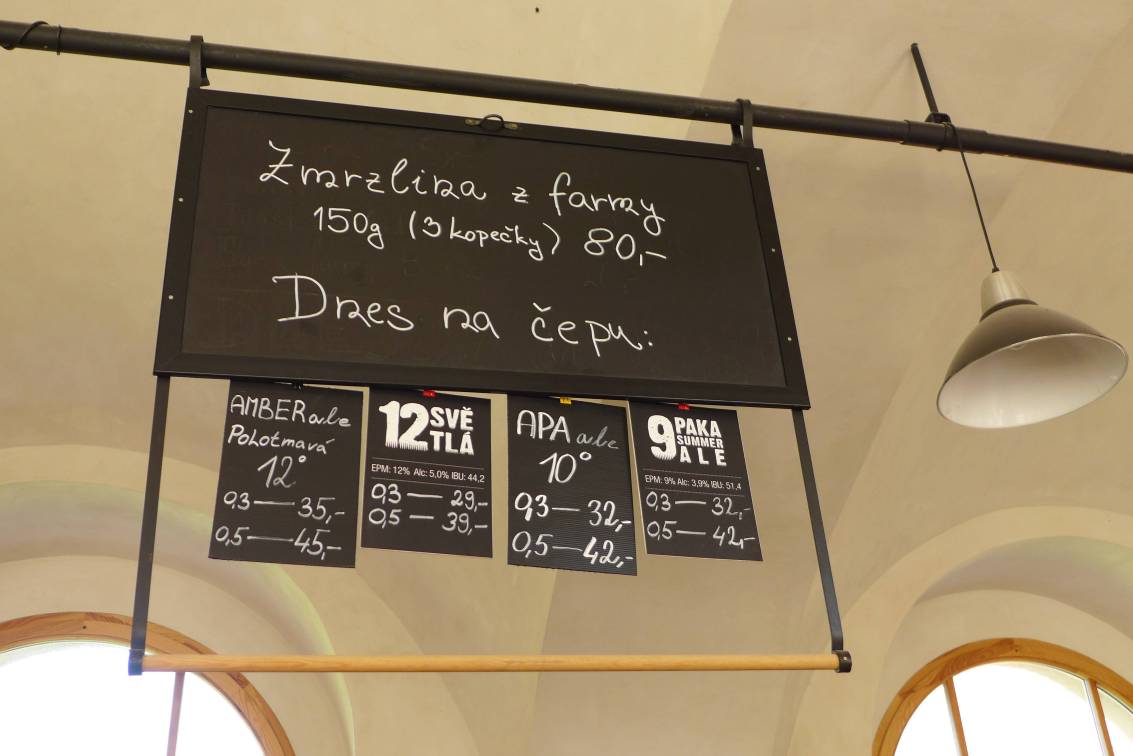 Zmrzlina z farmy
150g (3 kopečky) 80,-
Dnes na čepu:
AMBER ale
Polotmavá
12°
0,3 — 35,-
0,5 — 45,-
12 SVĚ
TLÁ
EPM: 12% Alc: 5,0% IBU: 44,2
0,3 — 29,-
0,5 — 39,-
APA ale
10°
0,3 — 32,-
0,5 — 42,-
9 PAKA
SUMMER
ALE
EPM: 9% Alc: 3,9% IBU: 51,4
0,3 — 32,-
0,5 — 42,-